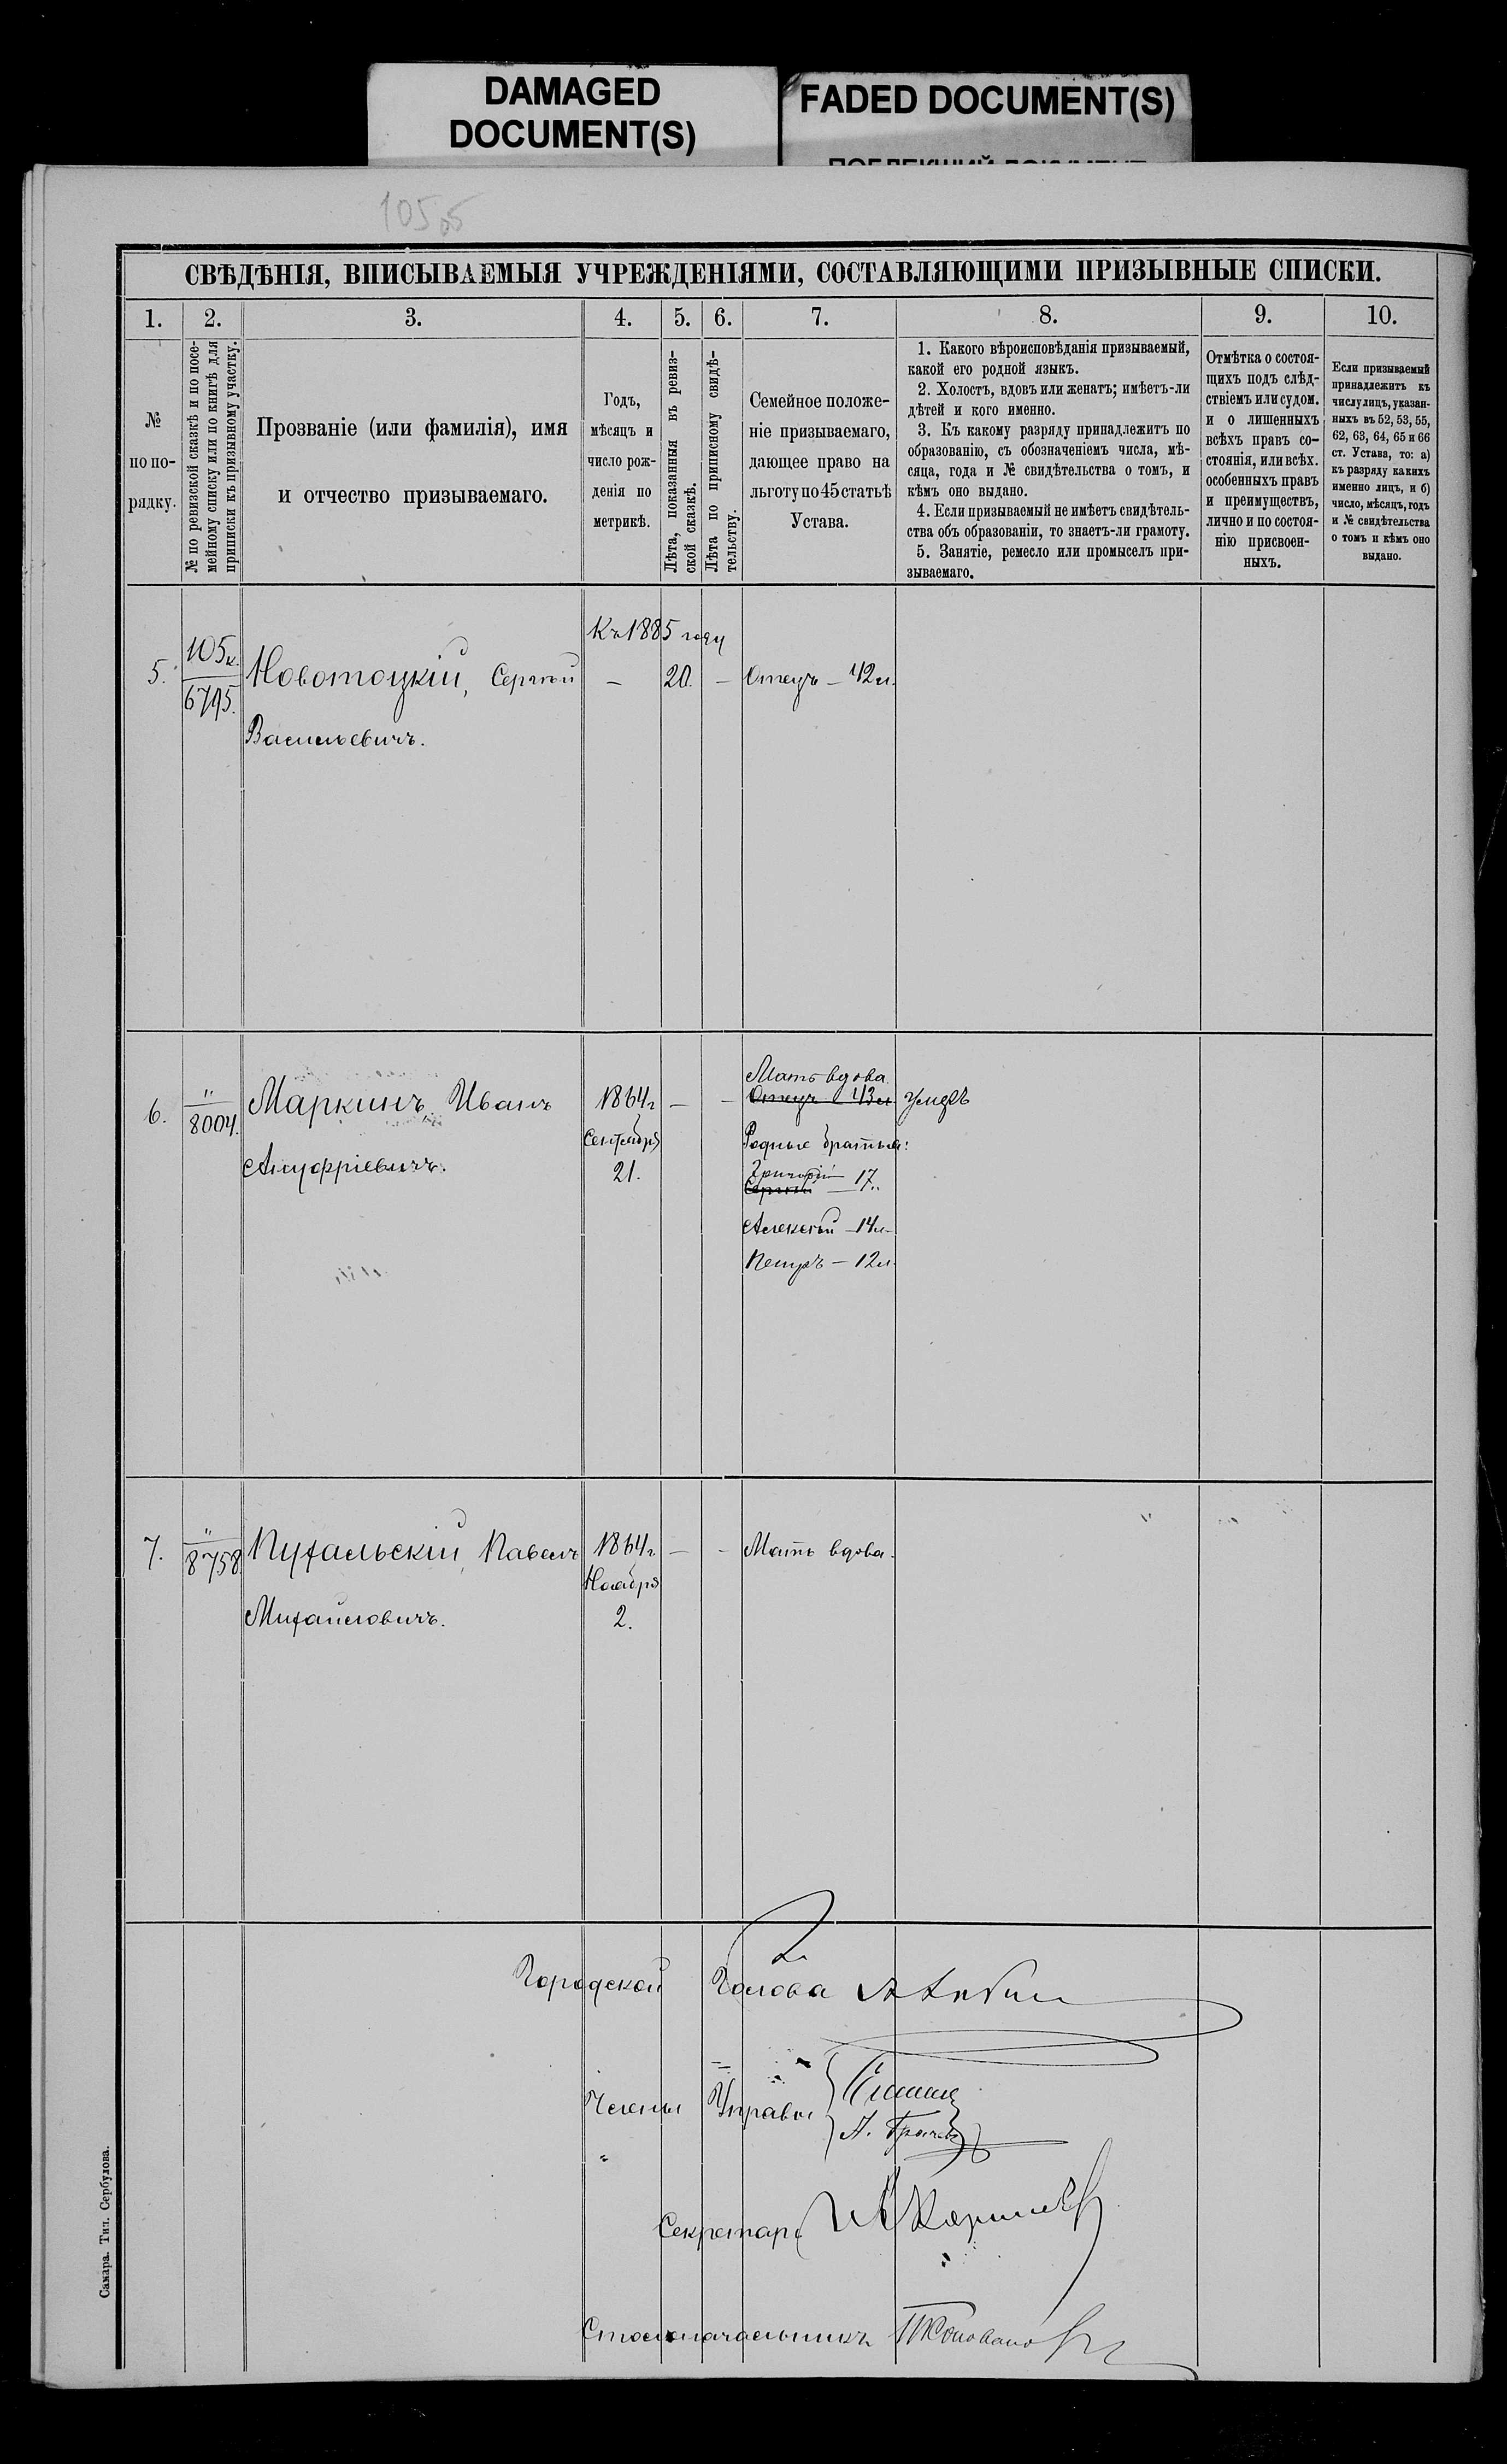 DAMAGED
DOCUMENT(S)
FADED DOCUMENT(S)
105 об
СВѢДѢНІЯ, ВПИСЫВАЕМЫЯ УЧРЕЖДЕНІЯМИ, СОСТАВЛЯЮЩИМИ ПРИЗЫВНЫЕ СПИСКИ.
1. 2. 3. 4. 5. 6. 7. 8. 9. 10.
№
по по-
рядку.
№ по ревизской сказкѣ и по посе-
мейному списку или по книгѣ для
приписки къ призывному участку.
Прозваніе (или фамилія), имя
и отчество призываемаго.
Годъ,
мѣсяцъ и
число рож-
денія по
метрикѣ.
Лѣта, показанныя въ ревиз-
ской сказкѣ.
Лѣта по приписному свидѣ-
тельству.
Семейное положе-
ніе призываемаго,
дающее право на
льготу по 45 статьѣ
Устава.
1. Какого вѣроисповѣданія призываемый,
какой его родной языкъ.
2. Холостъ, вдовъ или женатъ; имѣетъ-ли
дѣтей и кого именно.
3. Къ какому разряду принадлежитъ по
образованію, съ обозначеніемъ числа, мѣ-
сяца, года и № свидѣтельства о томъ, и
кѣмъ оно выдано.
4. Если призываемый не имѣетъ свидѣтель-
ства объ образованіи, то знаетъ-ли грамоту.
5. Занятіе, ремесло или промыселъ при-
зываемаго.
Отмѣтка о состоя-
щихъ подъ слѣд-
ствіемъ или судом.
и о лишенныхъ
всѣхъ правъ со-
стоянія, или всѣх.
особенныхъ правъ
и преимуществъ,
лично и по состоя-
нію присвоен-
ныхъ.
Если призываемый
принадлежитъ къ
числу лицъ, указан-
ныхъ въ 52, 53, 55,
62, 63, 64, 65 и 66
ст. Устава, то: а)
къ разряду какихъ
именно лицъ, и б)
число, мѣсяцъ, годъ
и № свидѣтельства
о томъ и кѣмъ оно
выдано.
Къ 1885 году
5. 105к. 6795. Новотоцкій, Сергѣй — 20. — Отецъ — 42 л.
Васильевичъ.
Мать вдова
6. " 8004. Маркинъ, Иванъ 1864 г — — Отецъ 43 л
Сентября Родные братья:
Ануфріевичъ. 21. Григорій — 17..
Сергѣй
Алексѣй — 14 л.
Петръ — 12 л.
7. " 8758 Пухальскій, Павелъ 1864 г. — — Мать вдова.
Ноября
Михайловичъ. 2.
Городской Голова
Члены Управы
"
Секретарь
Столоначальникъ
Самара. Тип. Сербулова.